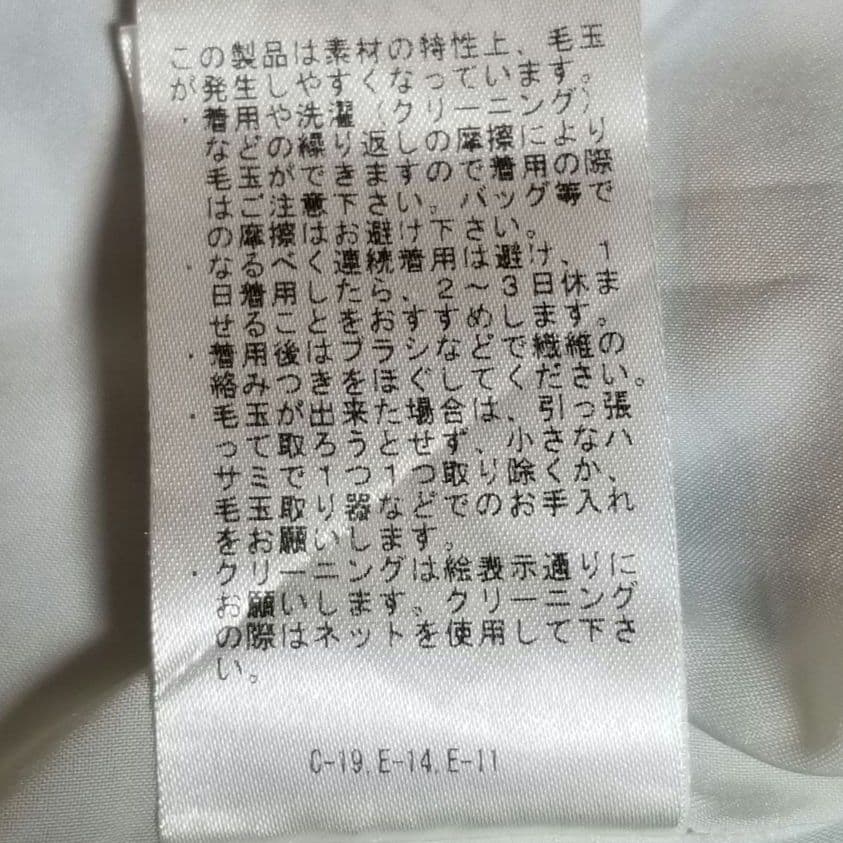 この製品は素材の特性上、毛玉
が発生しやすくなっています。
・着用や洗濯（クリーニング）
などの繰り返しの摩擦により
毛玉ができますので着用の際
はご注意下さい。バッグ等で
の摩擦はお避け下さい。
・なるべく連続着用は避け、1
日着用したら、2〜3日休ま
せることをおすすめします。
・着用後はブラシなどで繊維の
絡みつきをほぐしてください。
・毛玉が出来た場合は、引っ張
って取ろうとせず、小さなハ
サミで1つ1つ取り除くか、
毛玉取り器などでのお手入れ
をお願いします。
・クリーニングは絵表示通りに
お願いします。クリーニング
の際はネットを使用して下さ
い。
C-19.E-14.E-11